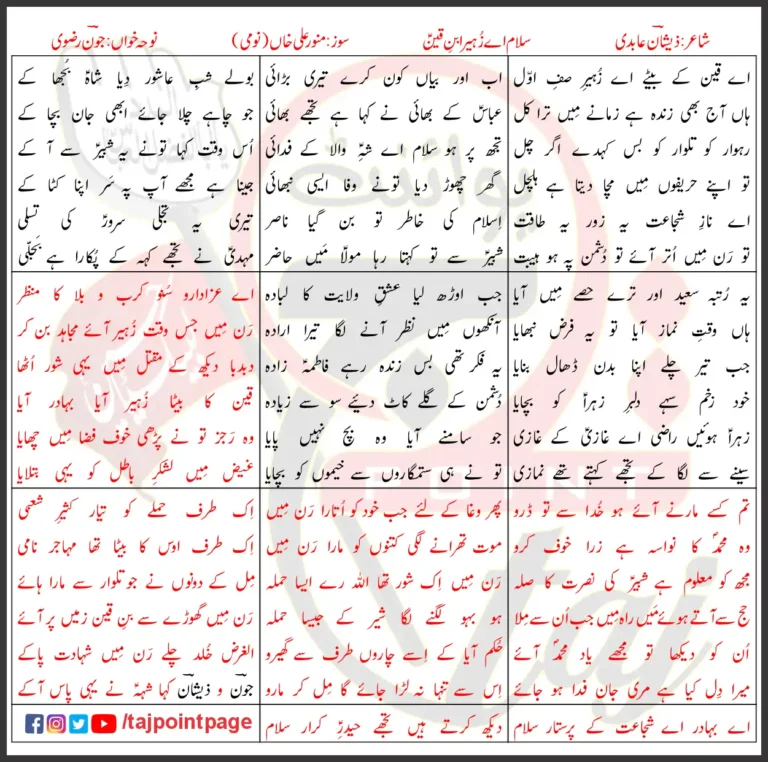 شاعر: ذیشان عابدی
سلام اے زُہیر ابنِ قینؑ
سوز: منور علی خاں (نومی)
نوحہ خواں: جون رضوی
اے قین کے بیٹے اے زُہیرِ صفِ اوّل
ہاں آج بھی زندہ ہے زمانے میں ترا کل
رہوار کو تلوار کو بس کہدے اگر چل
تو اپنے حریفوں میں مچا دیتا ہے ہلچل
اے نازِ شجاعت یہ زور یہ طاقت
تو رَن میں اُتر آئے تو دُشمن پہ ہو ہیبت
اب اور بیاں کون کرے تیری بڑائی
عباسؑ کے بھائی نے کہا ہے تجھے بھائی
تجھ پر ہو سلام اے شہِؑ والا کے فدائی
گھر چھوڑ دیا تونے وفا ایسی نبھائی
اِسلام کی خاطر تو بن گیا ناصر
شبیرؑ سے تو کہتا رہا مولاؑ مَیں حاضر
بولے شبِ عاشور دیا شاہؑ بُجھا کے
جو چاہے چلا جائے ابھی جان بچا کے
اُس وقت کہا تونے یہ شبیرؑ سے آ کے
جینا ہے مجھے آپ پہ سَر اپنا کٹا کے
تیری یہ تجلی سرورؑ کی تسلی
مہدیؑ نے تجھے کہہ کے پُکارا ہے بَجَلّی
یہ رُتبہ سعید اور ترے حصے میں آیا
ہاں وقتِ نماز آیا تو یہ فرض نبھایا
جب تیر چلے اپنا بدن ڈھال بنایا
خود زخم سہے دلبرِ زہراؑ کو بچایا
زہراؑ ہوئیں راضی اے غازیؑ کے غازی
سینے سے لگا کے تجھے کہتے تھے نمازی
جب اوڑھ لیا عشقِ ولایت کا لبادہ
آنکھوں میں نظر آنے لگا تیرا ارادہ
یہ فکر تھی بس زندہ رہے فاطمہؑ زادہ
دُشمن کے گلے کاٹ دیئے سو سے زیادہ
جو سامنے آیا وہ بچ نہیں پایا
تو نے ہی ستمگاروں سے خیموں کو بچایا
اے عزادارو سُنو کرب و بلا کا منظر
رَن میں جس وقت زُہیر آئے مجاہد بن کر
دبدبا دیکھ کے مقتل میں یہی شور اُٹھا
قین کا بیٹا زُہیر آیا بہادر آیا
وہ رَجز تو نے پڑھی خوف فضا میں چھایا
غیض میں لشکرِ باطل کو یہی بتلایا
تم کسے مارنے آئے ہو خُدا سے تو ڈرو
وہ محمدؐ کا نواسہ ہے زرا خوف کرو
مجھ کو معلوم ہے شبیرؑ کی نصرت کا صلہ
حج سے آتے ہوئے مَیں راہ میں جب اُن سے مِلا
اُن کو دیکھا تو مجھے یاد محمدؐ آئے
میرا دِل کیا ہے مری جان فدا ہو جائے
پھر وغا کے لئے جب خود کو اُتارا رَن میں
موت تھرانے لگی کتنوں کو مارا رَن میں
رَن میں اِک شور تھا اللہ رے ایسا حملہ
ہو بہو لگنے لگا شیر کے جیسا حملہ
حُکم آیا کے اِسے چاروں طرف سے گھیرو
اِس سے تنہا نہ لڑا جائے گا مِل کر مارو
اِک طرف حملے کو تیار کثیرِ شعبی
اِک طرف اوس کا بیٹا تھا مہاجر نامی
مِل کے دونوں نے جو تلوار سے مارا ہائے
رَن میں گھوڑے سے بن قین زمیں پر آئے
الغرض خُلد چلے رَن میں شہادت پا کے
جون و ذیشان کہا شہہؑ نے یہی پاس آ کے
اے بہادر اے شجاعت کے پرستار سلام
دیکھ کرتے ہیں تجھے حیدرِؑ کرار سلام
/tajpointpage
POINT
taj